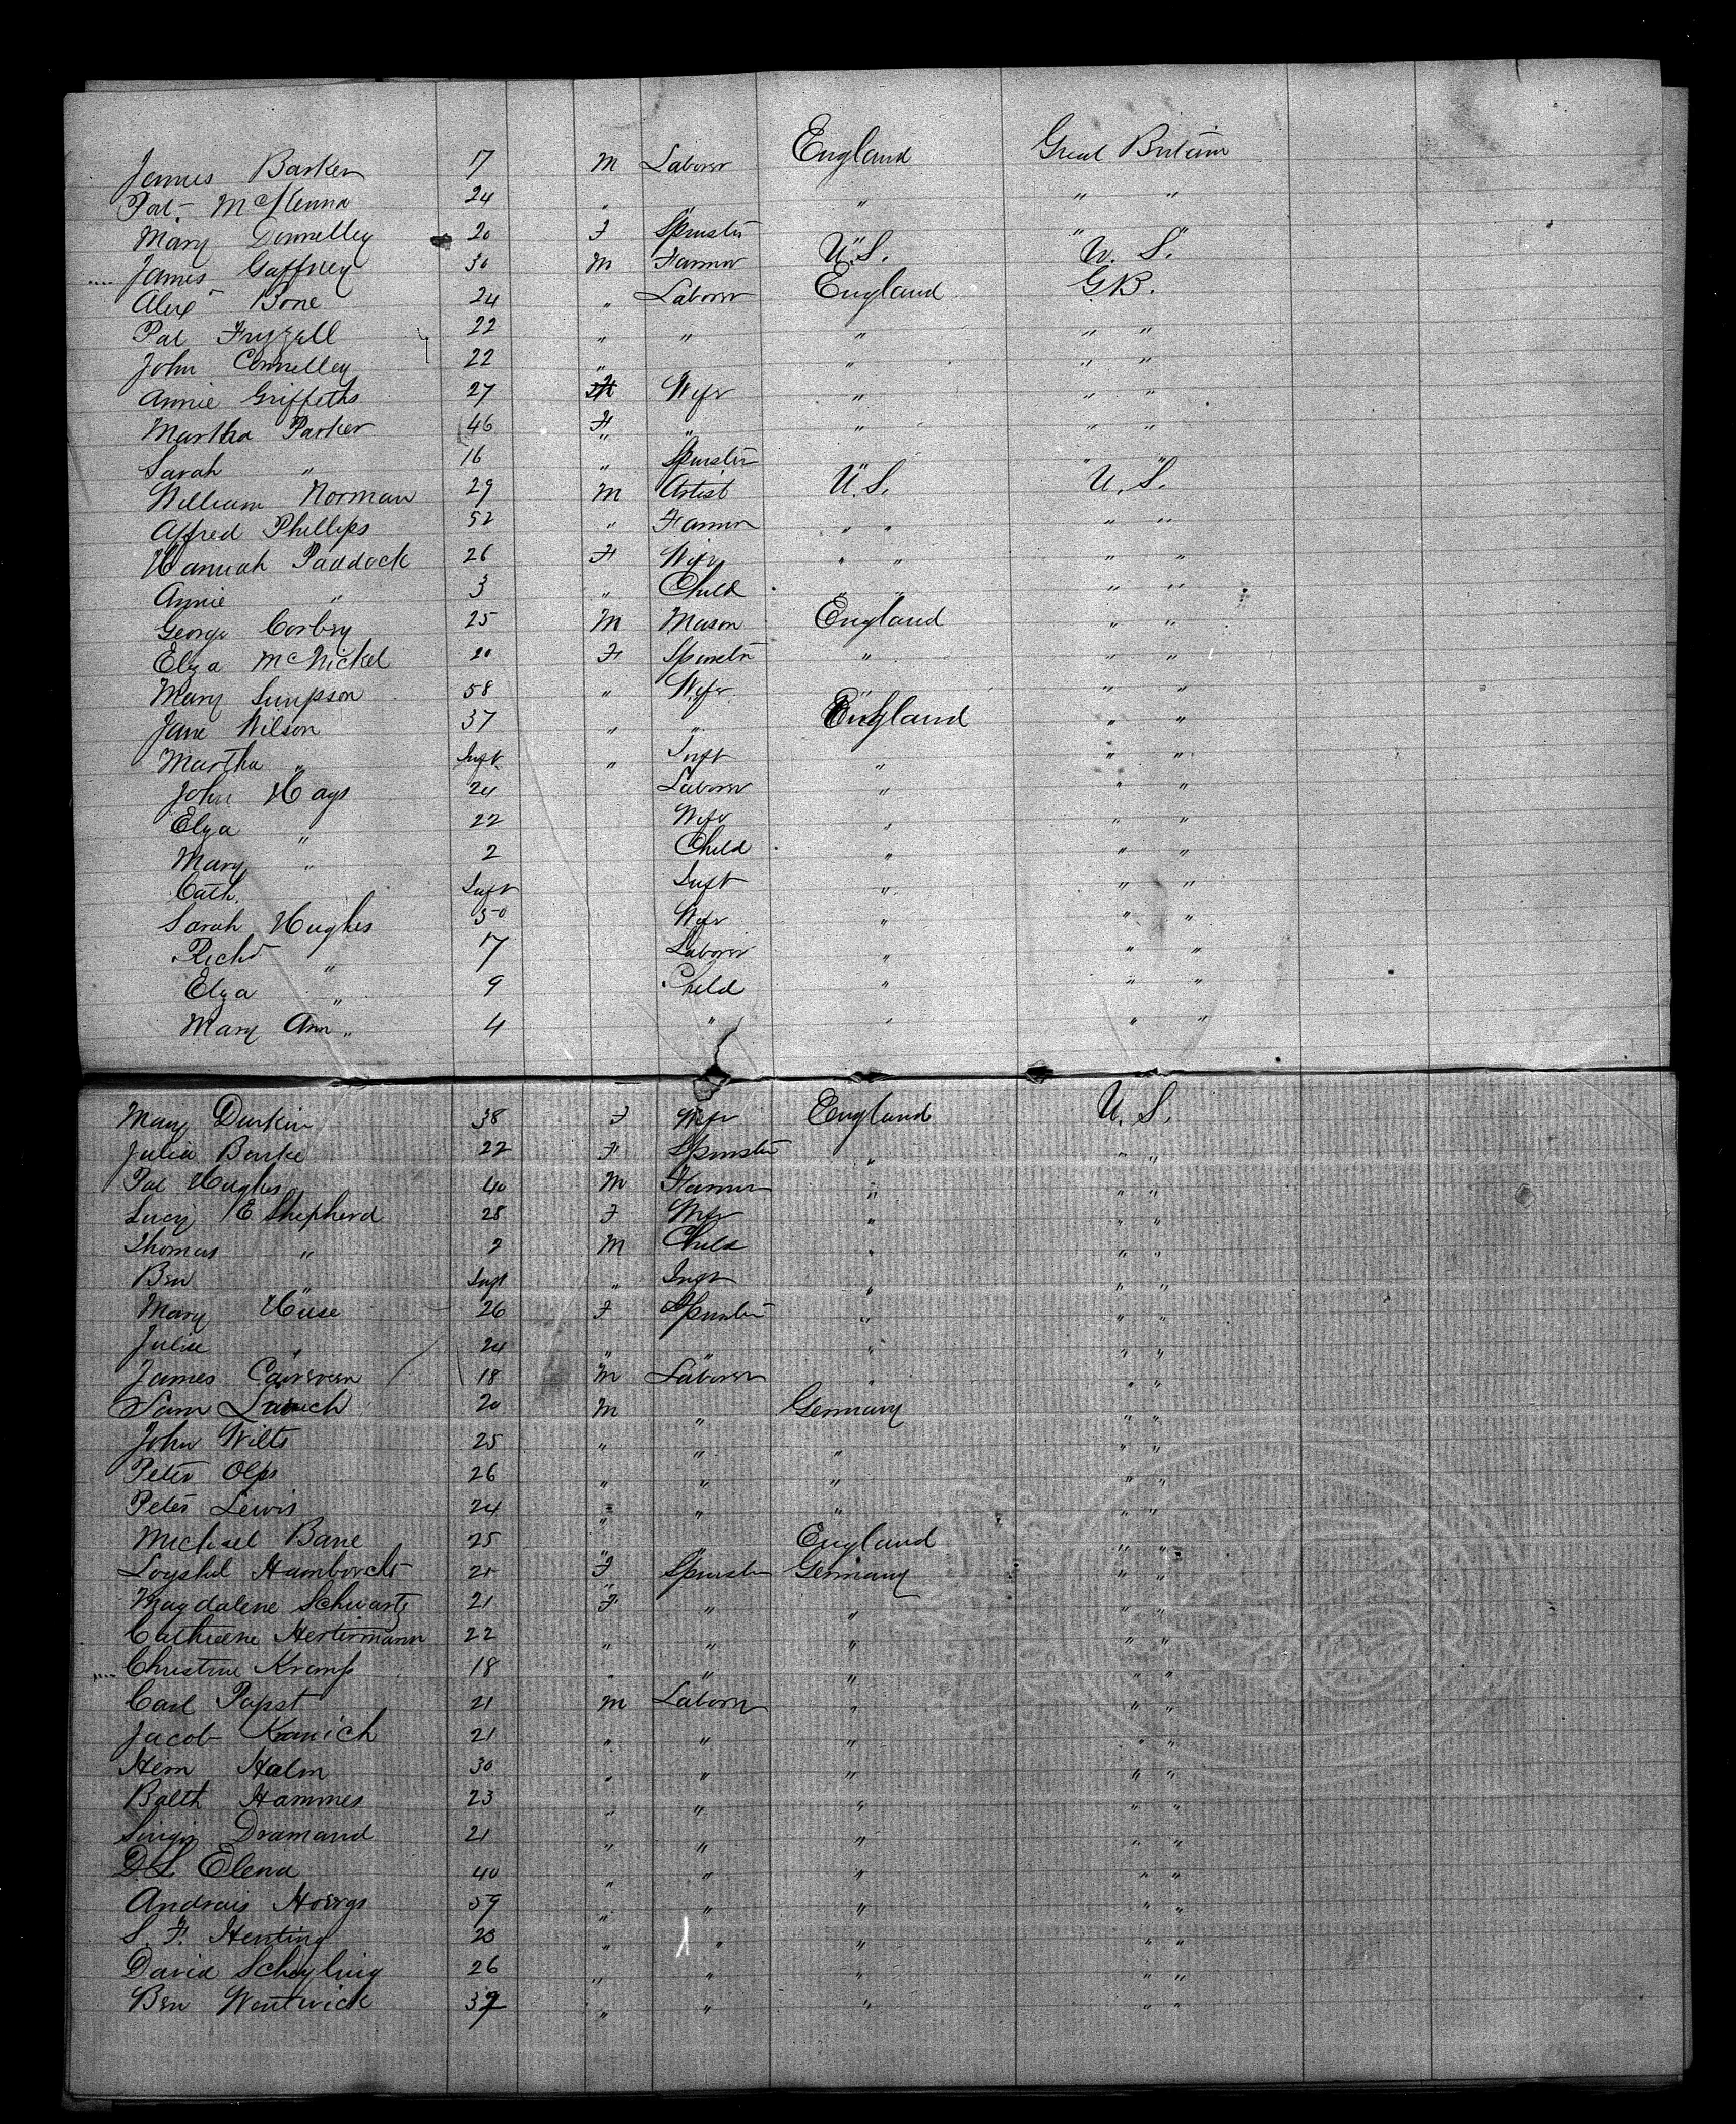 James Barker 17 M Laborer England Great Britain
Pat McKenna 24 " " " " "
Mary Donnelley 20 F Spinster " " "
James Gaffney 30 M Farmer U.S. U.S.
Alex Bone 24 " Laborer England G.B.
Pat Fryzell 22 " " " " "
John Connelley 22 " " " "
Annie Griffeths 27 F Wife " " "
Martha Parker 46 F " " " "
Sarah " 16 " Spinster " " "
William Norman 29 M Artist U.S. U.S.
Alfred Phillips 52 " Farmer " " " "
Hannah Paddock 26 F Wife " " " "
Annie " 3 " Child " " " "
George Corbey 25 M Mason England " "
Elza McNickel 20 F Spinster " " "
Mary Simpson 58 " Wife " " "
Jane Wilson 37 " " England " "
Martha " Inft " Inft " " "
John Hays 24 Laborer " " "
Elza " 22 Wife " " "
Mary " 2 Child " " "
Cath. Inft Inft " " "
Sarah Hughes 50 Wife " " "
Richd " 17 Laborer " " "
Elza " 9 Child " " "
Mary Ann " 4 " " " "
Mary Durkin 38 F Wife England U.S.
Julia Burke 22 F Spinster " " "
Pat Hughes 40 M Farmer " " "
Lucy E Shepherd 28 F Wife " " "
Thomas " 2 M Child " " "
Ben " Inft " Inft " " "
Mary House 26 F Spinster " " "
Julia " 24 " " " " "
James 18 M Laborer " " "
Sam 20 M " Germany " "
John Wilts 25 " " " " "
Peter Olps 26 " " " " "
Peter Lewis 24 " " " " "
Michael Bane 25 " " England " "
Hamborcht 21 F Spinster Germany " "
Magdalene Schwartz 21 F " " " "
Cathrene Hertermann 22 " " " " "
Christine Kramp 18 " " " " "
Carl Papst 21 M Laborer " " "
Jacob Kranich 21 " " " " "
Hern Halm 30 " " " " "
Balth Hammes 23 " " " " "
Dramand 21 " " " " "
D.L. Elena 40 " " " " "
Andrais 59 " " " " "
S. F. Henting 23 " " " " "
David Scheyling 26 " " " " "
Ben Wentwick 37 " " " " "